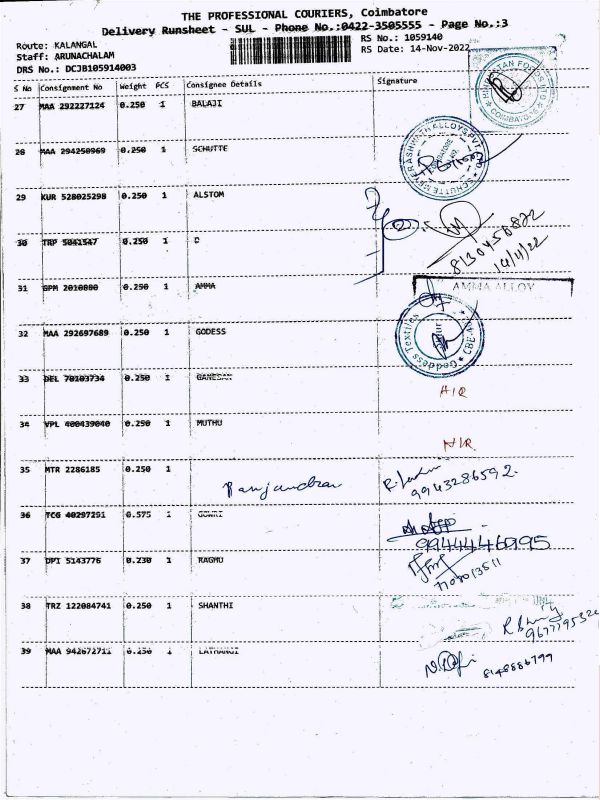 THE PROFESSIONAL COURIERS, Coimbatore
Delivery Runsheet - SUL - Phone No.:0422-3505555 - Page No.:3
Route: KALANGAL
RS No.: 1059140
Staff: ARUNACHALAM
RS Date: 14-Nov-2022
DRS No.: DCJB105914003
S No Consignment No Weight PCS Consignee Details Signature
27 MAA 292227124 0.250 1 BALAJI
COIMBATORE
28 MAA 294250969 0.250 1 SCHUTTE
29 KUR 528025298 0.250 1 ALSTOM
8130458822
14/11/22
30 TRP 5041547 0.250 1 D
31 GPM 2010800 0.250 1 AMMA
AMMA ALLOY
32 MAA 292697689 0.250 1 GODESS
Goddess Textiles CBE
33 DEL 70103734 0.250 1 GANESAN
34 VPL 400439040 0.250 1 MUTHU
35 MTR 2286185 0.250 1
9943286592
36 TCG 40297291 0.575 1 GOWRI
9944446995
37 DPI 5143776 0.230 1 RAGHU
7709013511
38 TRZ 122084741 0.250 1 SHANTHI
39 MAA 942672711 0.250 1
8148886799